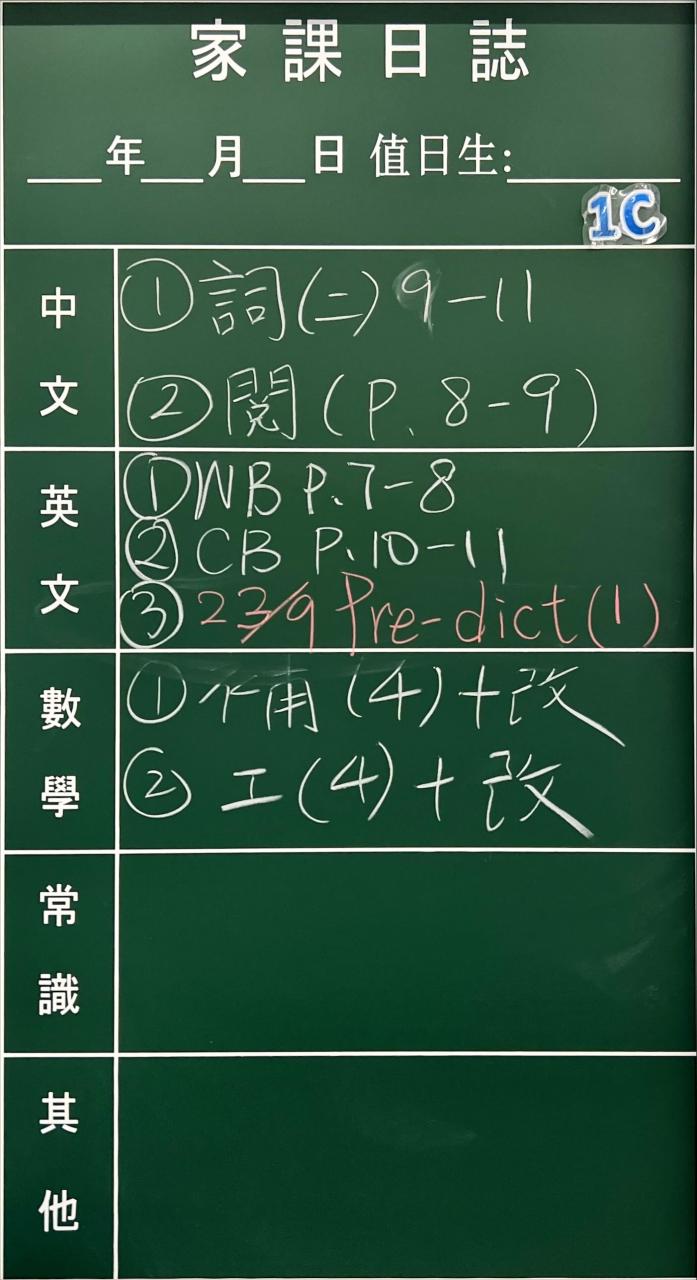 家課日誌
___年___月___日 值日生:________
1C
中文
① 詞(二) 9-11
② 閱 (P. 8-9)
英文
① WB P.7-8
② CB P.10-11
③ 23/9 Pre-dict(1)
數學
① 補 (4) + 改
② 工 (4) + 改
常識
其他